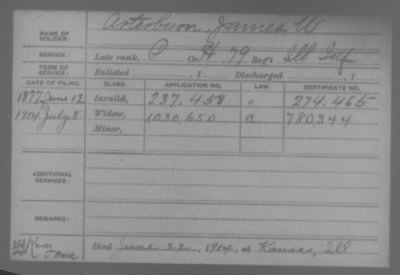 NAME OF SOLDIER: Arterburn, James W
SERVICE: Late rank, C Co. H, 79 Reg't Ill Inf
TERM OF SERVICE: Enlisted , 1 Discharged , 1
DATE OF FILING. CLASS. APPLICATION NO. LAW. CERTIFICATE NO.
1877 June 12 Invalid, 237,458 274,465
1914 July 8 Widow, 1030,650 a 780,344
Minor,
ADDITIONAL SERVICES:
REMARKS:
Died June 22, 1914, at Kansas, Ill